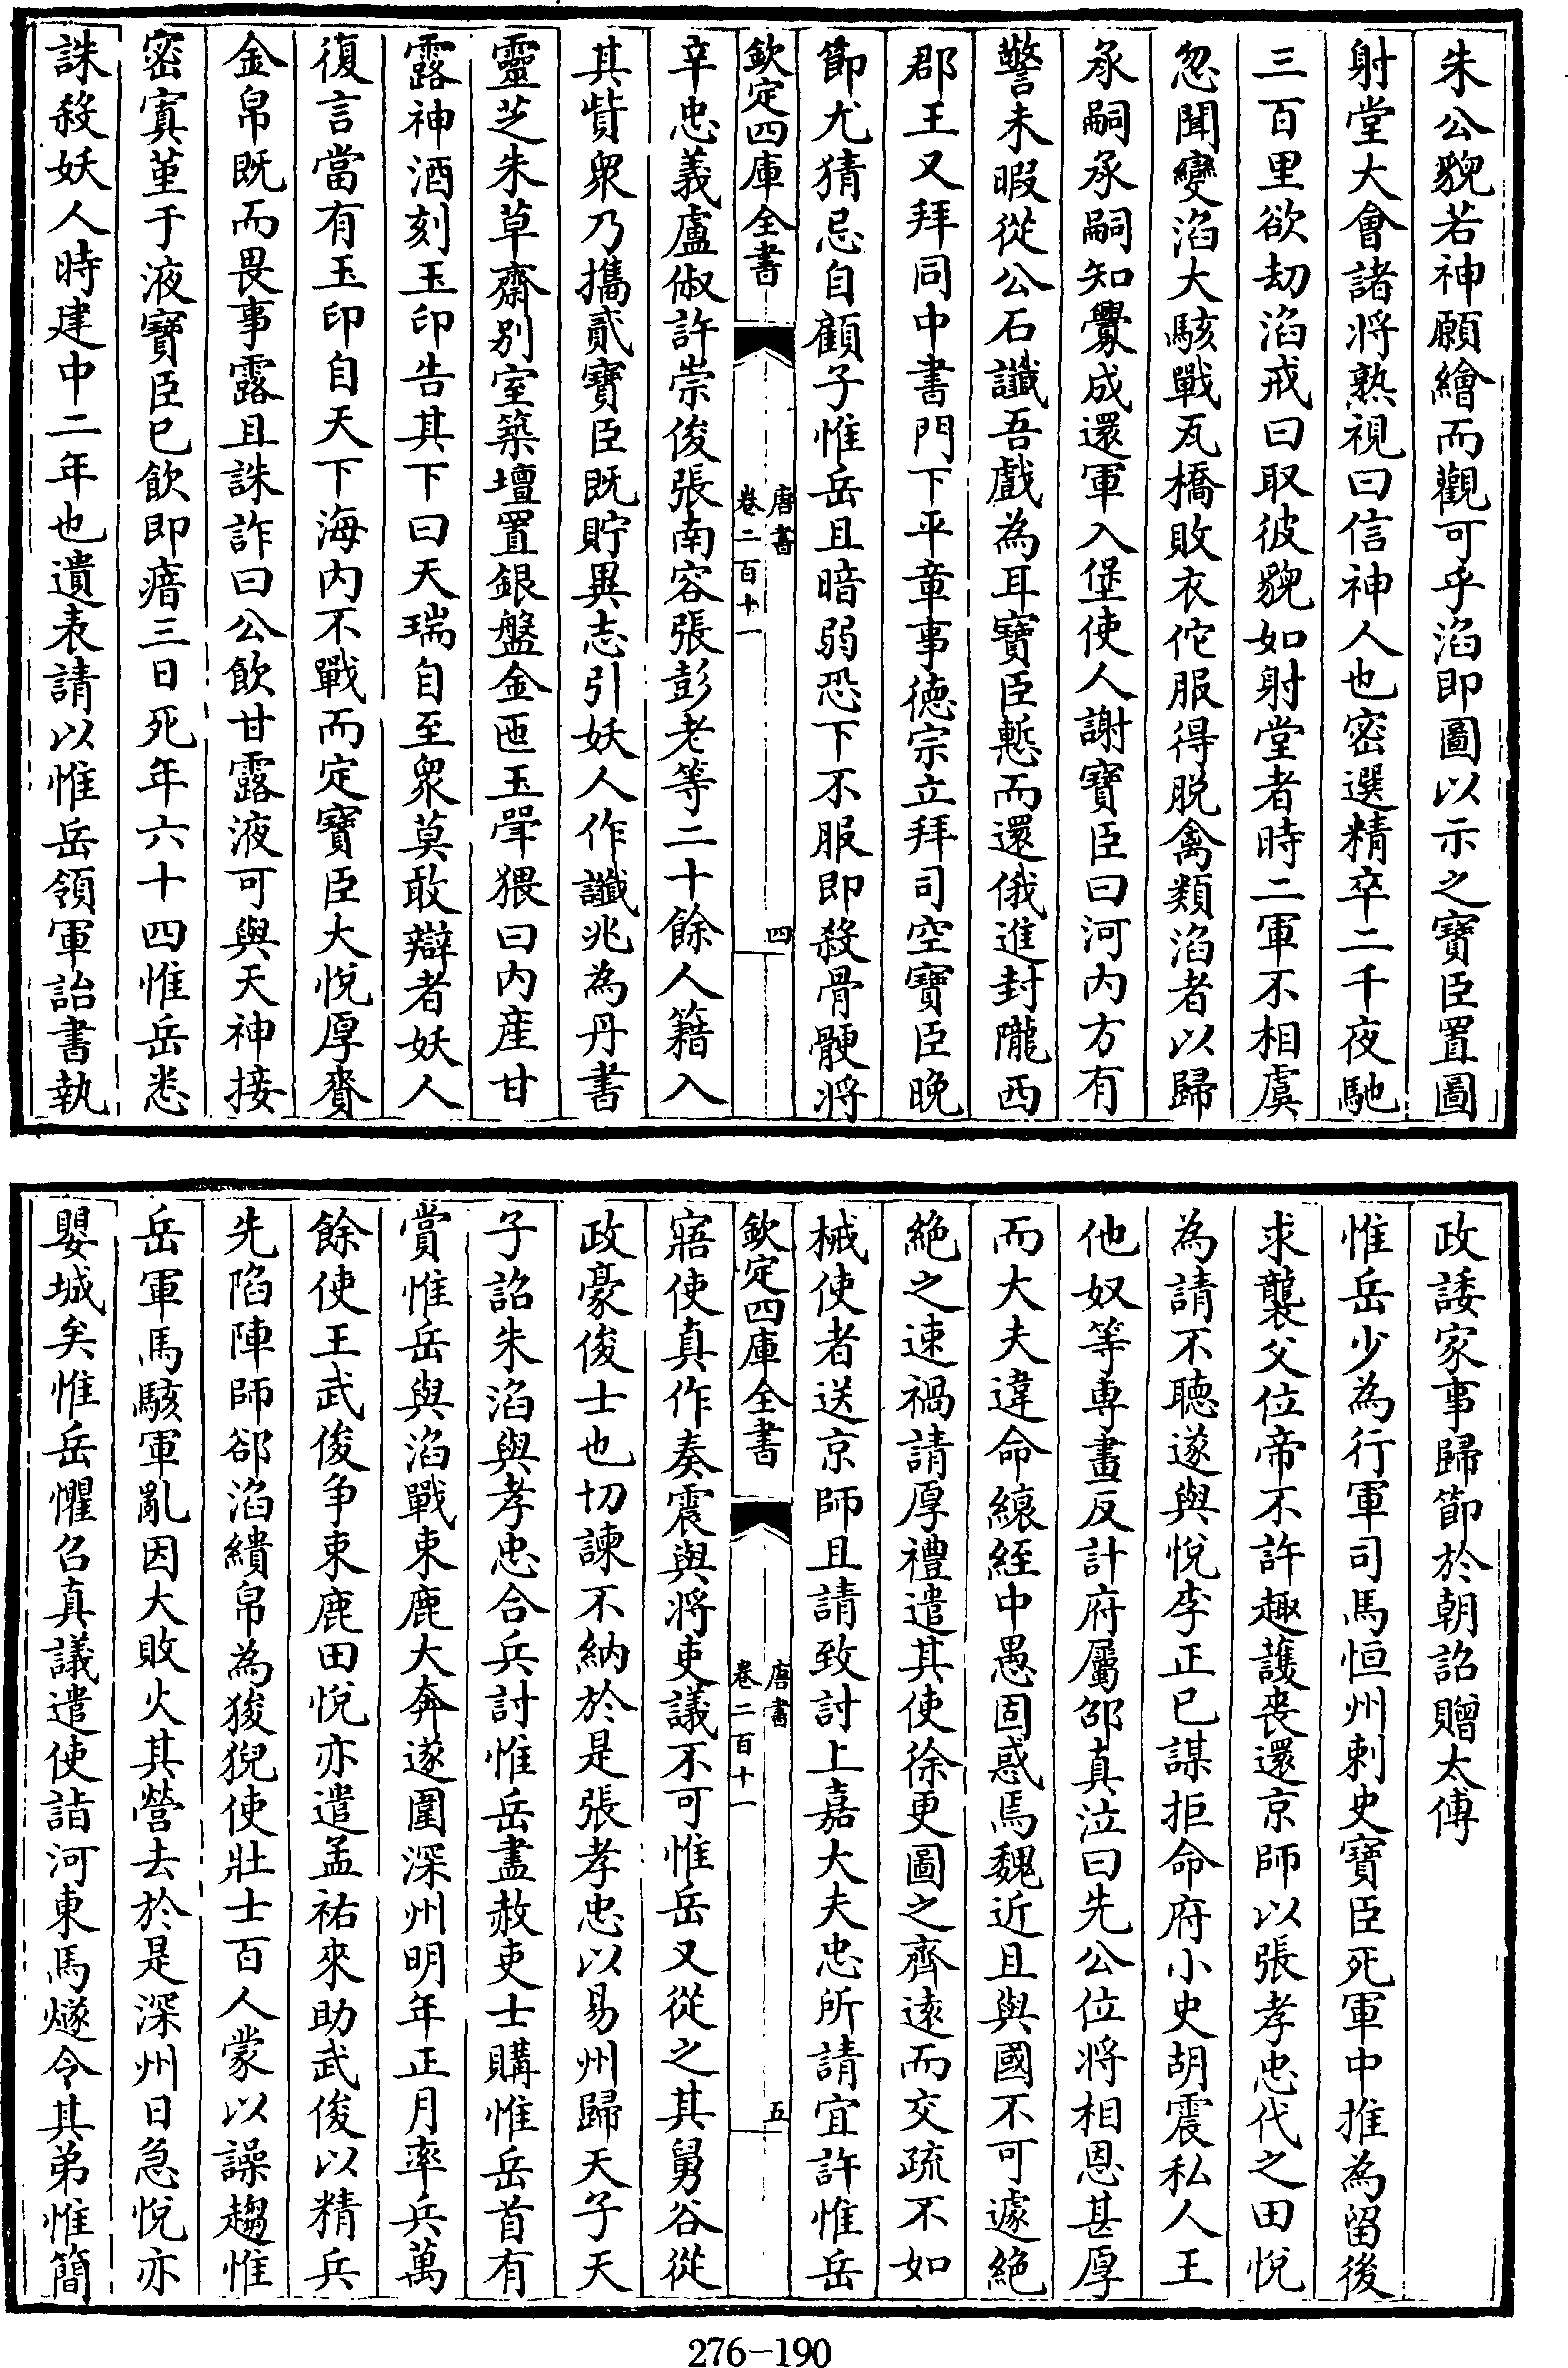 朱公貌若神願繪而觀可乎滔即圖以示之寶臣置圖
射堂大會諸將熟視曰信神人也密選精卒二千夜馳
三百里欲劫滔戒曰取彼貌如射堂者時二軍不相虞
忽聞變滔大駭戰瓦橋敗衣佗服得脱禽類滔者以歸
承嗣承嗣知釁成還軍入堡使人謝寶臣曰河内方有
警未暇從公石讖吾戲為耳寶臣慙而還俄進封隴西
郡王又拜同中書門下平章事德宗立拜司空寶臣晚
節尤猜忌自顧子惟岳且暗弱恐下不服即殺骨鯁將
欽定四庫全書
唐書
卷二百十一
四
辛忠義盧俶許崇俊張南容張彭老等二十餘人籍入
其貲衆乃攜貳寶臣既貯異志引妖人作讖兆為丹書
靈芝朱草齋别室築壇置銀盤金匜玉斝猥曰内産甘
露神酒刻玉印告其下曰天瑞自至衆莫敢辯者妖人
復言當有玉印自天下海内不戰而定寶臣大悅厚賚
金帛既而畏事露且誅詐曰公飲甘露液可與天神接
密寘堇于液寶臣已飲即瘖三日死年六十四惟岳悉
誅殺妖人時建中二年也遺表請以惟岳領軍詒書執
政諉家事歸節於朝詔贈太傅
惟岳少為行軍司馬恒州刺史寶臣死軍中推為留後
求襲父位帝不許趣護喪還京師以張孝忠代之田悅
為請不聽遂與悅李正已謀拒命府小史胡震私人王
他奴等専畫反計府屬邵真泣曰先公位將相恩甚厚
而大夫違命縗絰中愚固惑焉魏近且與國不可遽絶
絶之速禍請厚禮遣其使徐更圖之齊遠而交疏不如
械使者送京師且請致討上嘉大夫忠所請宜許惟岳
欽定四庫全書
唐書
卷二百十一
五
寤使真作奏震與將吏議不可惟岳又從之其舅谷從
政豪俊士也切諫不納於是張孝忠以易州歸天子天
子詔朱滔與孝忠合兵討惟岳盡赦吏士購惟岳首有
賞惟岳與滔戰束鹿大奔遂圍深州明年正月率兵萬
餘使王武俊争束鹿田悅亦遣孟祐來助武俊以精兵
先陷陣師郤滔繢帛為狻猊使壯士百人蒙以譟趨惟
岳軍馬駭軍亂因大敗火其營去於是深州日急悅亦
嬰城矣惟岳懼召真議遣使詣河東馬燧令其弟惟簡
276-190